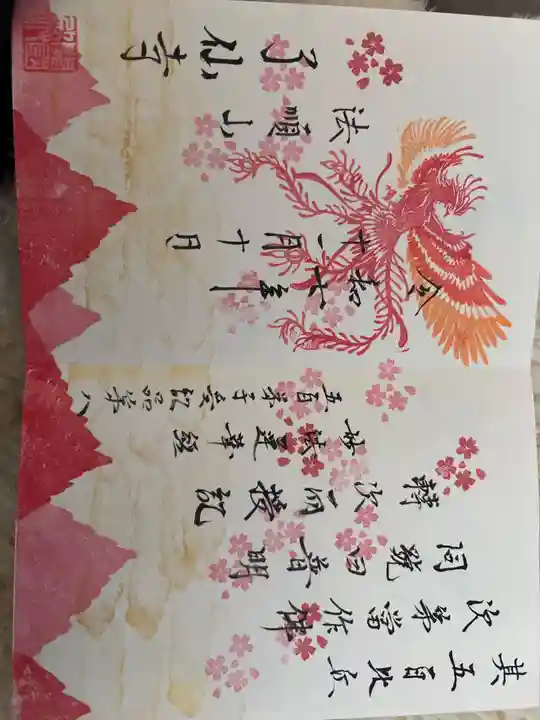 其五百比丘
次第當作佛
同號曰普明
轉次而授記
妙法蓮華經
五百弟子受記品第八
令和七年
十一月十日
法順山
了仙寺